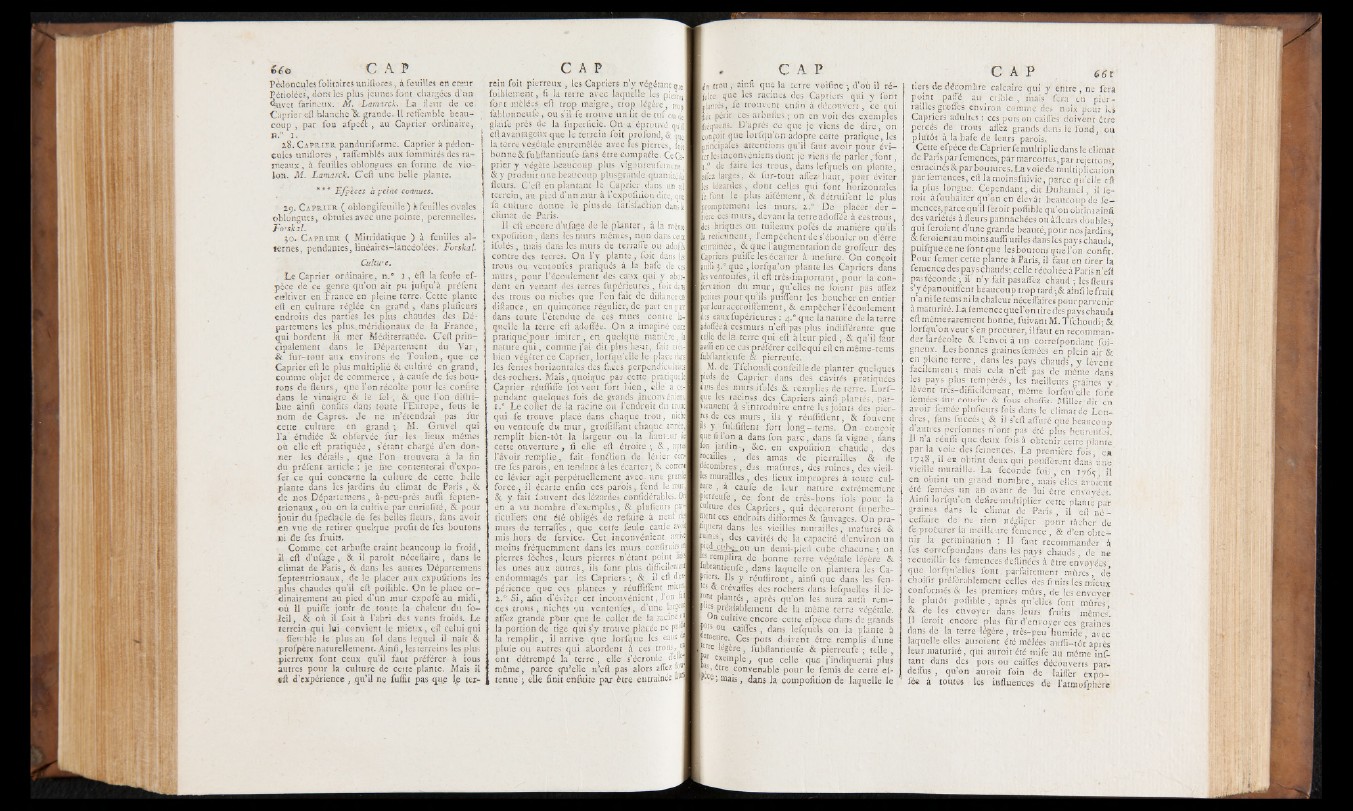 660 C A P
Pédoncules solitaires uniflores, à feuilles en cœur
Pétiolées, dont les plus jeunes sont chargées d'un
duvet farineux. M. Lamarck. La fleur de ce
Caprier est blanche & grande. Il ressemble beau-
coup, par son aspect, au Caprier ordinaire,
n.° 1.
28. CAPRIER panduriforme. Caprier à pédon-
cules uniflores, rassemblés aux sommités des ra-
meaux, à feuilles oblongues en forme de vio-
lon. M. Lamarck. C'est une belle plante.
*** Espèces à peine connues.
29. CAPRIER (oblongifeuille) à feuilles ovales
oblongues, obtuses avec une pointe, perennelles.
Forskal.
30. CAPRIER ( Mitridatique ) à feuilles al-
ternes, pendantes, linéaires-lancéolées. Forskal.
Culture.
Le Caprier ordinaire, n.° 1, est la seule es-
pèce de ce genre qu'on ait pu jusqu'à présent
cultiver en France en pleine terre. Cette plante
est en culture réglée en grand, dans plusieurs
endroits des parties les plus chaudes des Dé-
partemens les plus méridionaux de la France,
qui bordent la mer Méditerranée. C'est prin-
cipalement dans le Département du Var,
& sur-tout aux environs de Toulon, que ce
Caprier est le plus multiplié & cultivé en grand,
comme objet de commerce, à cause de ses bou-
tons de fleurs, que l'on récolte pour les confire
dans le vinaigre & le sel, & que l'on distri-
bue ainsi confits dans toute l'Europe, sous le
nom de Capres. Je ne m'étendrai pas sur
cette culture en grand ; M. Gruvel qui
l'a étudiée & observée sur les lieux mêmes
où elle est pratiquée, s'étant chargé d'en don-
ner les détails, que l'on trouvera à la fin
du présent article : je me contenterai d'expo-
ser ce qui concerne la culture de cette belle
plante dans les jardins du climat de Paris, &
de nos Départemens, à-peu-près aussi septen-
trionaux, où on la cultive par curiosité, & pour
jouir du spectacle de ses belles fleurs, sans avoir
en vue de retirer quelque profit de ses boutons
ni de ses fruits.
Comme cet arbuste craint beaucoup le froid,
il est d'usage, & il paroît nécessaire, dans le
climat de Paris, & dans les autres Départemens
septentrionaux, de le placer aux expositions les
plus chaudes qu'il est possible. On le place or-
dinairement au pied d'un mur exposé au midi,
où il puisse jouir de toute la chaleur du so-
leil, & où il soit à l'abri des vents froids. Le
terrein qui lui convient le mieux, est celui qui
semble le plus au sol dans lequel il naît &
prospère naturellement. Ainsi, les terreins les plus
pierreux sont ceux qu'il faut préférer à tous
autres pour la culture de cette plante. Mais il
est d'expérience, qu'il ne suffit pas que le ter-
C A P
rein soit pierreux, les Capriers n'y végétant que
foiblement, si la terre avec laquelle les pierres
sont mêlées est trop maigre, trop légère,
sablonneuse, ou s'il se trouve un lit de tuf ou de
glaise près de la superficie. On a éprouvé qu'il
est avantageux que le terrein soit profond, & que
la terre végétale entremêlée avec les pierres, soit
bonne & substantieuse sans être compacte. Ce Ca-
prier y végète beaucoup plus vigoureusement
& y produit une beaucoup plus grande quantité de
fleurs. C'est en plantant le Caprier dans un tel
terrein, au pied d'un mur à l'exposition dite, que
sa culture donne le plus de satisfaction dans le
climat de Paris.
Il est encore d'usage de le planter, à la même
exposition, dans les murs mêmes, non dans ceux
isolés, mais dans les murs de terrasse ou adossés
contre des terres. On l'y plante, soit dans les
trous ou ventouses pratiqués à la base de ces
murs, pour l'écoulement des eaux qui y abon-
dent en venant des terres supérieures, soit dans
des trous ou niches que l'on fait de distance en
distance, en quinconce régulier, de part en part
dans toute l'étendue de ces murs contre la-
quelle la terre est adossée. On a imaginé cette
pratique pour imiter, en quelque manière, la
nature qui, comme j'ai dit plus haut, fait
bien végéter ce Caprier, lorsqu'elle le place dans
les fentes horizontales des faces perpendiculaires
des rochers. Mais, quoique par cette pratique le
Caprier réussisse souvent fort bien, elle a ce-
pendant quelques fois de grands inconvéniens.
1.° Le collet de la racine ou l'endroit du tronc
qui se trouve placé dans chaque trou, niche
ou ventouse du mur, grossissant chaque année,
remplit bien-tôt la largeur ou la hauteur de
cette ouverture, si elle est étroite ; &, après
l'avoir remplie, fait fonction de lévier con-
tre ses parois, en tendant à les écarter ; & comme
ce lévier agit perpétuellement avec une grande
force, il écarte enfin ces parois, fend le mur,
& y fait souvent des lézardes considérables. On
en a vu nombre d'exemples, & plusieurs par-
ticuliers ont été obligés de refaire à neuf des
murs de terrasses, que cette seule cause avoit
mis hors de service. Cet inconvénient arrive
moins fréquemment dans les murs construits en
pierres sèches, leurs pierres n'étant point liées
les unes aux autres, ils sont plus difficilement
endommagés par les Capriers ; & il est d'ex-
périence que ces plantes y réussissent mieux.
2.° Si, afin d'éviter cet inconvénient, l'on fait
ces trous, niches ou ventouses, d'une largeur
assez grande pour que le collet de la racine
la portion de tige qui s'y trouve placée ne puisse
la remplir, il arrive que lorsque les eaux de
pluie ou autres qui abordent à ces trous,
ont détrempé la terre, elle s'écroule d'elle-
même, parce qu'elle n'est pas alors assez sou-
tenue ; elle finit ensuite par être entraînée hors
C A P
du trou, ainsi que la terre voisine ; d'où il ré-
sulte que les racines des Capriers qui y sont
plantés, se trouvent enfin à découvert, ce qui
fait périr ces arbustes ; on en voit des exemples
fréquens. D'après ce que je viens de dire, on
conçoit que lorsqu'on adopte cette pratique, les
principales attentions qu'il faut avoir pour évi-
ter les inconvéniens dont je viens de parler, sont,
1.° de faire les trous, dans lesquels on plante,
assez larges, & sur-tout assez haut, pour éviter
les lézardes, dont celles qui sont horizontales
se font le plus aisément, & détruisent le plus
promptement les murs. 2.° De placer der-
rière ces murs, devant la terre adossée à ces trous,
des briques ou tuileaux posés de manière qu'ils
la retiennent, l'empêchent de s'ébouler ou d'être
entraînée, & que l'augmentation de grosseur des
Capriers puisse les écarter à mesure. On conçoit
aussi 3.° que, lorsqu'on plante les Capriers dans
les ventouses, il est très-important, pour la con-
servation du mur, qu'elles ne soient pas assez
petites pour qu'ils puissent les boucher en entier
par leur accroissement, & empêcher l'écoulement
des eaux supérieures : 4.° que la nature de la terre
adossée à ces murs n'est pas plus indifférente que
celle de la terre qui est à leur pied, & qu'il faut
aussi en ce cas préférer celle qui est en même-tems
substantieuse & pierreuse.
M. de Tschoudi conseille de planter quelques
pieds de Caprier dans des cavités pratiquées
dans des murs isolés & remplies de terre. Lors-
que les racines des Capriers ainsi plantés, par-
viennent à s'introduire entre les joints des pier-
res de ces murs, ils y réussissent, & souvent
ils y subsistent fort long-tems. On conçoit
que si l'on a dans son parc, dans sa vigne, dans
son jardin, &c. en exposition chaude, des
rocailles, des amas de pierrailles & de
décombres, des masures, des ruines, des vieil-
les murailles, des lieux impropres à toute cul-
ture, à cause de leur nature extrêmement
pierreuse, ce sont de très-bons sols pour la
culture des Capriers, qui décoreront superbe-
ment ces endroits difformes & sauvages. On pra-
tiquera dans les vieilles murailles, masures &
ruines, des cavités de la capacité d'environ un
pied cube ou un demi-pied cube chacune ; on
les remplira de bonne terre végétale légère &
substantieuse, dans laquelle on plantera les Ca-
priers. Ils y réussiront, ainsi que dans les fen-
tes & crévasses des rochers dans lesquelles il se-
ront plantés, après qu'on les aura aussi rem-
plies préalablement de la même terre végétale.
On cultive encore cette espèce dans de grands
pots ou caisses, dans lesquels on la plante à
demeure. Ces pots doivent être remplis d'une
terre légère, substantieuse & pierreuse ; telle,
par exemple, que celle que j'indiquerai plus
bas, être convenable pour le semis de cette es-
pèce ; mais, dans la composition de laquelle le
C A P 661
tiers de décombre calcaire qui y entre, ne sera
point passé au crible, mais sera en pier-
railles grosses environ comme des noix pour les
Capriers adultes : ces pots ou caisses doivent être
percés de trous assez grands dans le fond, ou
plutôt à la base de leurs parois.
Cette espéce de Caprier se multiplie dans le climat
de Paris par semences, par marcottes, par rejettons,
enracinés & par boutures. La voie de multiplication
par semences, est la moins suivie, parce qu'elle est
la plus longue. Cependant, dit Duhamel, il se-
roit à souhaiter qu'on en élevât beaucoup de se-
mences, parce qu'il seroit possible qu'on obtint ainsi
des variétés à fleurs pannachées ou à fleurs doubles,
qui seroient d'une grande beauté, pour nos jardins,
& seroient au moins aussi utiles dans les pays chauds,
puisque ce ne sont que les boutons que l'on confit.
Pour semer cette plante à Paris, il faut en tirer la
semence des pays chauds : celle récoltée à Paris n'est
pas féconde ; il n'y fait pas assez chaud ; les fleurs
s'y épanouissent beaucoup trop tard ; & ainsi le fruit
n'a ni le tems ni la chaleur nécessaires pour parvenir
à maturité. La semence que l'on tire des pays chauds
est mêmerarement bonne, suivant M. Tschoudi ; &
lorsqu'on veut s'en procurer, il faut en recomman-
der la récolte & l'envoi à un correspondant soi-
gneux. Les bonnes graines semées en plein air &
en pleine terre, dans les pays chauds, y lèvent
facilement ; mais cela n'est pas de même dans
les pays plus tempérés, les meilleurs graines y
lèvent très-difficilement, même lorsqu'elles sont
semées sur couche & sous chassis. Miller dit en
avoir semée plusieurs fois dans le climat de Lon-
dres, sans succès ; & il s'est assuré que beaucoup
d'autres personnes n'ont pas été plus heureuses.
Il n'a réussi que deux fois à obtenir cette plante
par la voie des semences. La première fois, en
1728, il en obtint deux qui poussèrent dans une
vieille muraille. La seconde fois, en 1765, il
en obtint un grand nombre, mais elles avoient
été semées un an avant de lui être envoyées.
Ainsi lorsqu'on desire multiplier cette plante par
graines dans le climat de Paris, il est né-
cessaire de ne rien négliger pour tâcher de
se procurer la meilleure semence, & d'en obte-
nir la germination : Il faut recommander à
ses correspondans dans les pays chauds, de ne
recueillir les semences destinées à être envoyées,
que lorsqu'elles sont parfaitement mûres, de
choisir préférablement celles des fruits les mieux
conformés & les premiers mûrs, de les envoyer
le plutôt possible, après qu'elles sont mûres,
& de les envoyer dans leurs fruits mêmes.
Il seroit encore plus sûr d'envoyer ces graines
dans de la terre légère, très-peu humide, avec
laquelle elles auroient été mêlées aussi-tôt après
leur maturité, qui auroit été mise au même ins-
tant dans des pots ou caisses découverts par-
dessus, qu'on auroit soin de laisser expo-
sée à toutes les influences de l'atmosphère